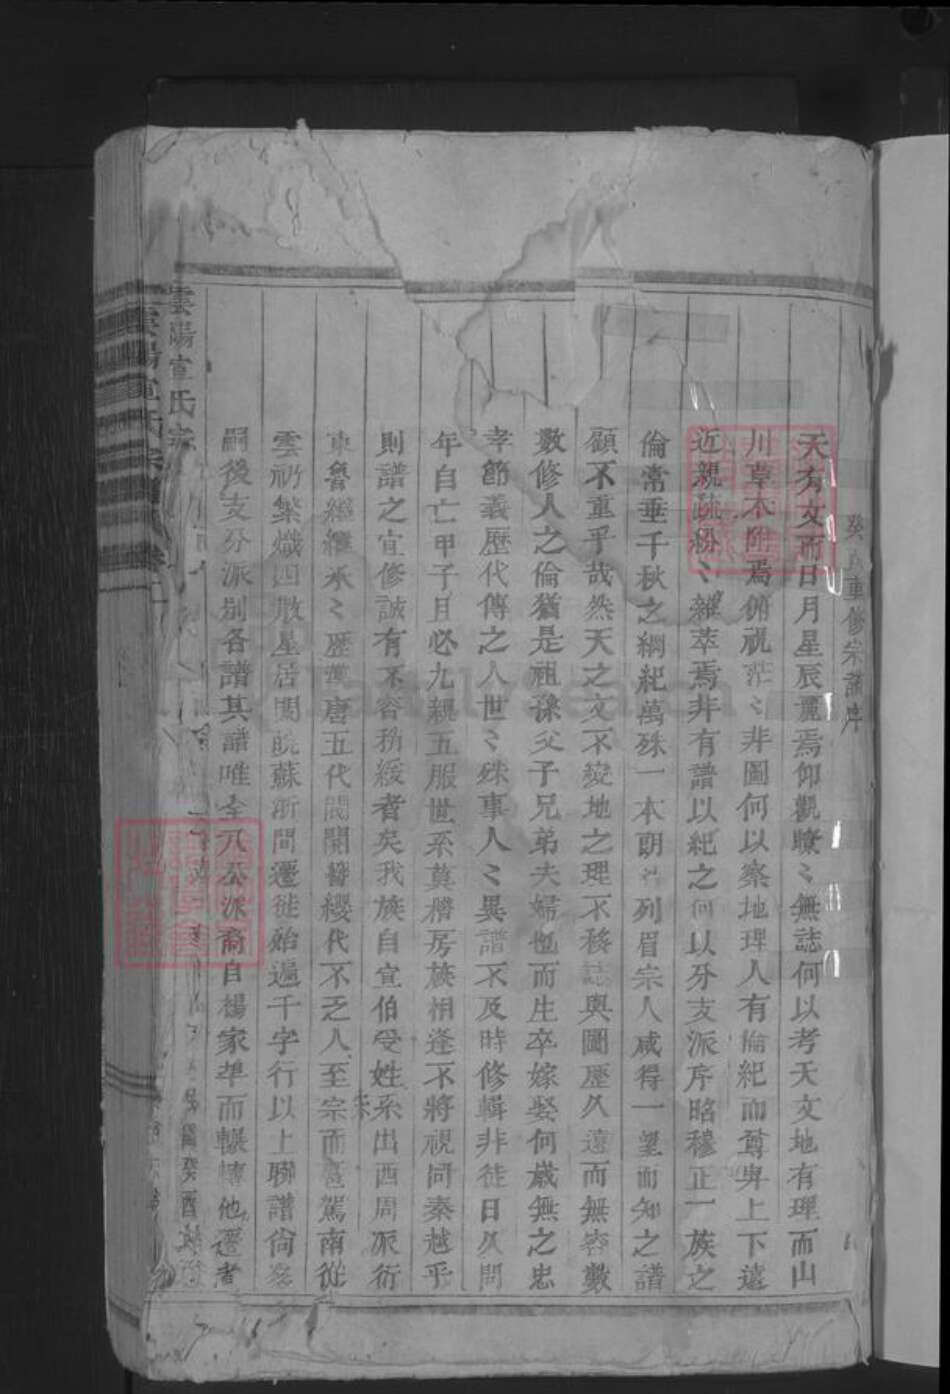 癸重修宗譜序
天有文而日月星辰麗焉仰觀瞭〻無誌何以考天文地有理而山
川草木附焉俯視茫〻非圖何以察地理人有倫紀而尊卑上下遠
近親疏紛〻雜萃焉非有譜以紀之何以分支派序昭穆正一族之
倫常垂千秋之綱紀萬殊一本朗〻列眉宗人咸得一望而知之譜
顧不重乎哉然天之文不變地之理不移誌與圖歷久遠而無容數
數修人之倫猶是祖孫父子兄弟夫婦也而生卒嫁娶何歲無之忠
孝節義歷代傳之人世〻殊事人〻異譜不及時修輯非徒日久間
年自亡甲子且必九親五服世系莫稽房族相逢不將視同秦越乎
則譜之宜修誠有不容務緩者矣我族自宣伯受姓系出西周派衍
東魯繼繼承〻歷漢唐五代閥閱簪纓代不乏人至宗而宋駕南從
雲礽繁熾四散星居閩皖蘇浙間遷徙殆遍千字行以上聯譜尚
嗣後支分派別各譜其譜唯全八公派裔自楊家準而輾轉他遷者
癸酉
雲陽宣氏宗
雲陽宣氏宗譜 卷一